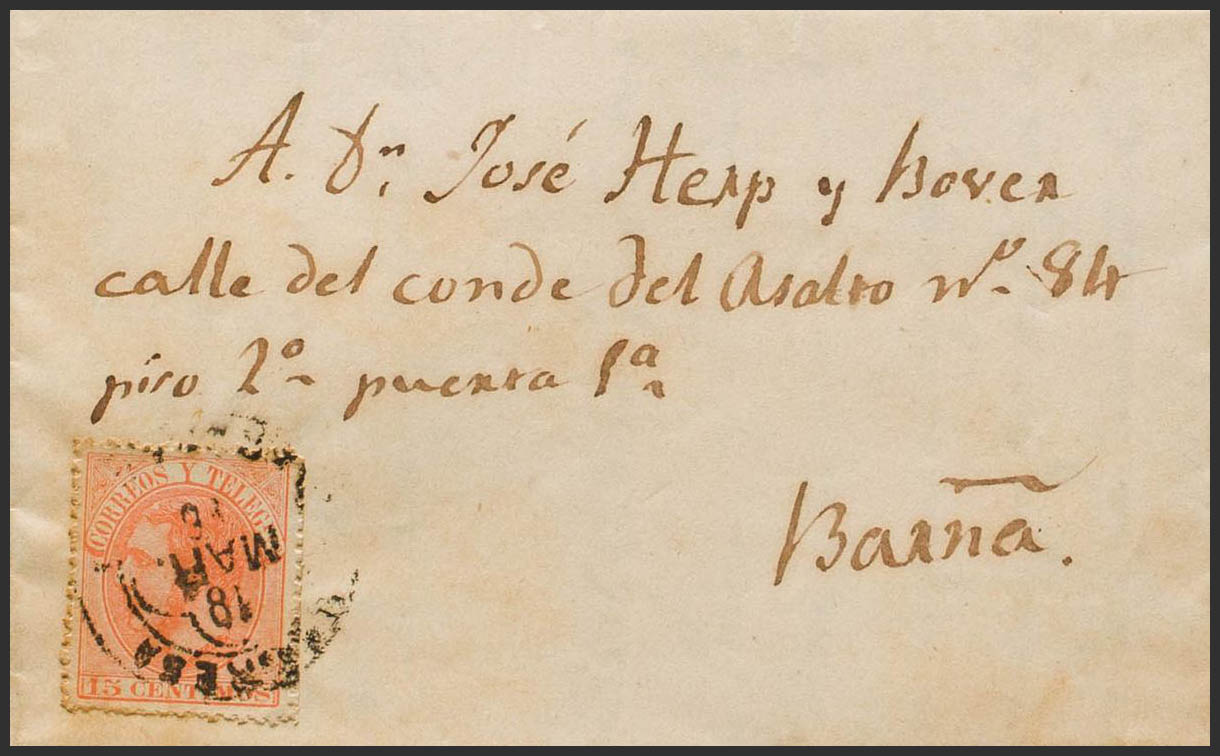 A. Dn. José Herp y Bover
calle del conde del Asalto nº. 84
piso 2º puerta 1ª
Barna.
CORREOS Y TELEG
MAR.
18
15 CENTIMOS